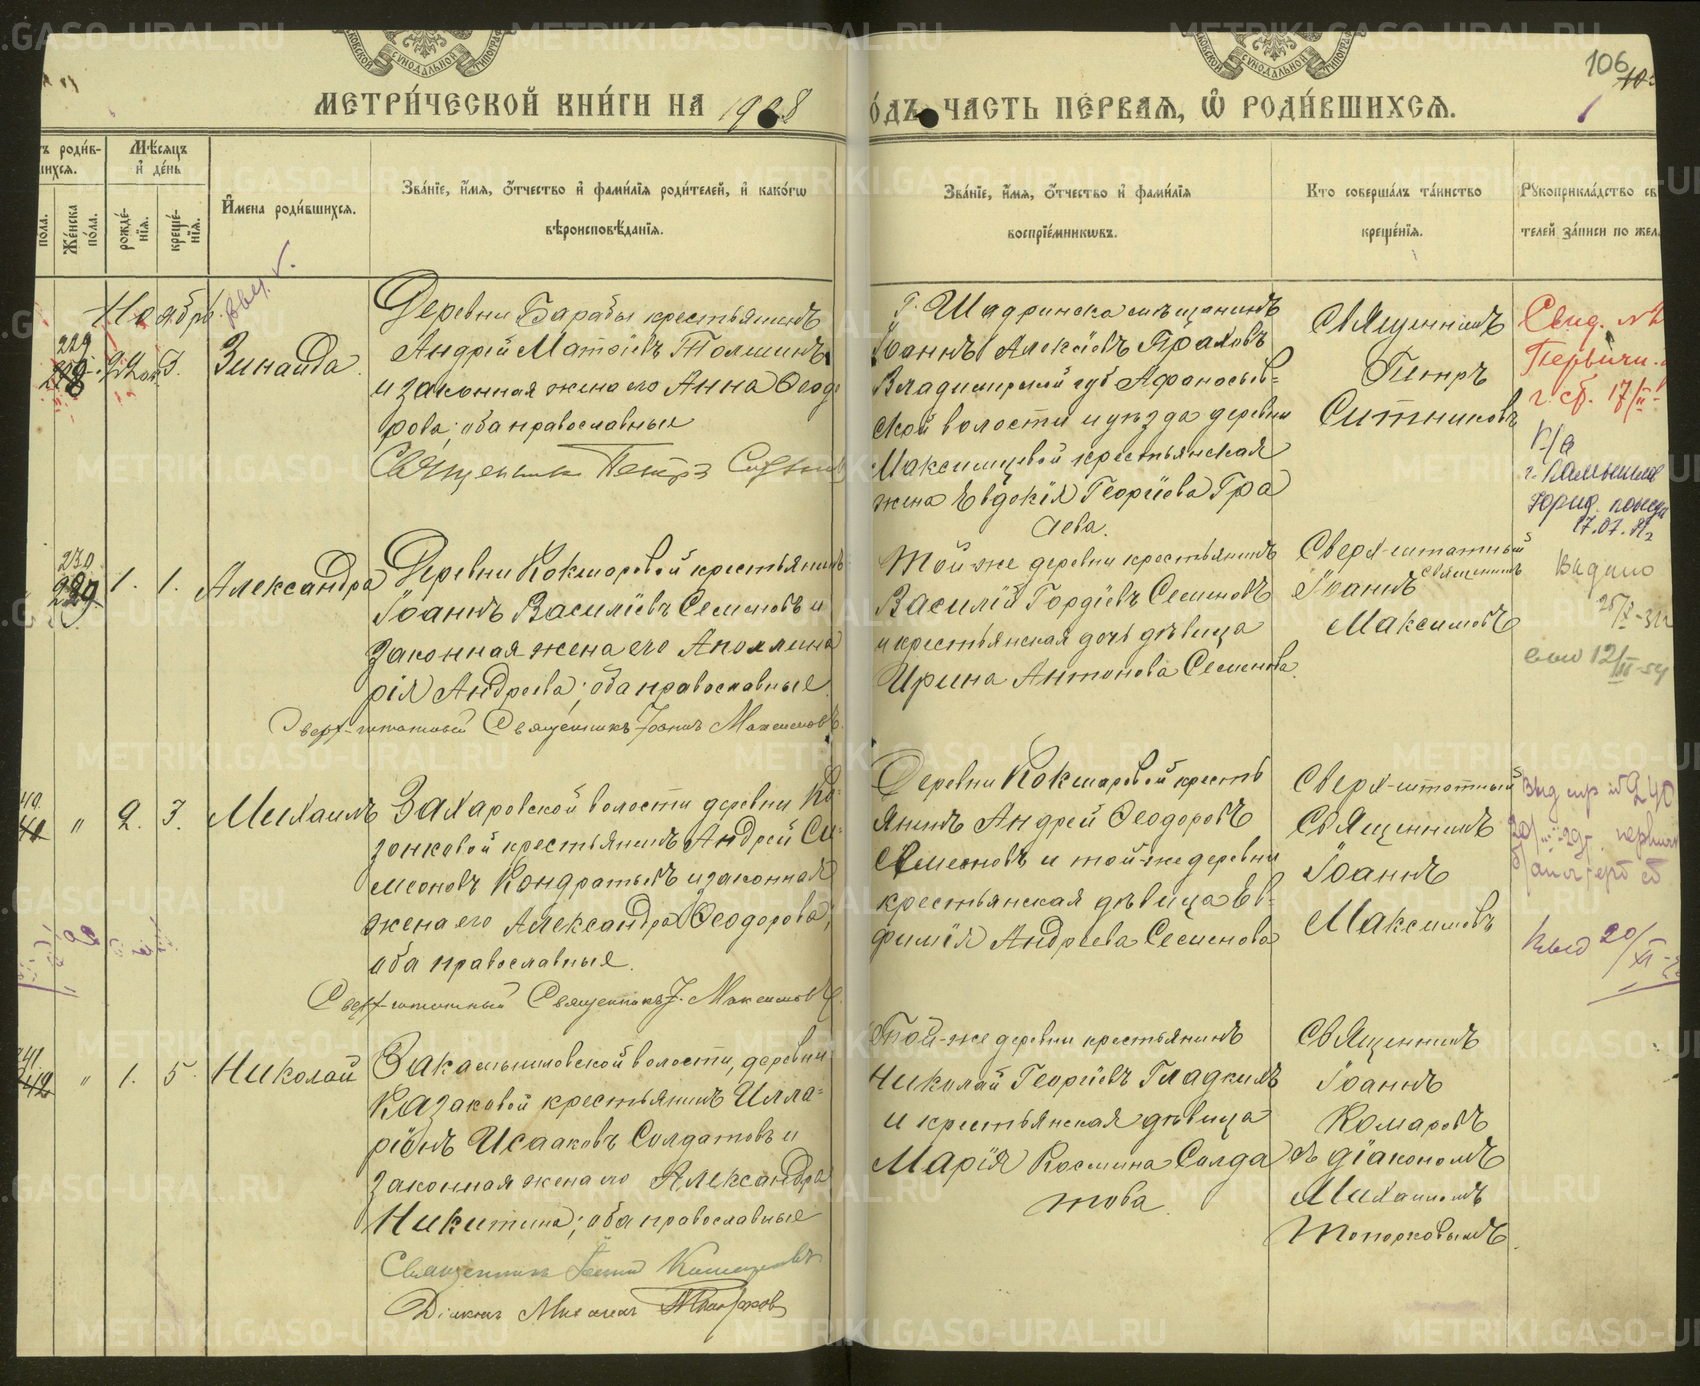 МЕТРИ́ЧЕСКОЙ КНИ́ГИ НА 1908
ГО́ДЪ ЧАСТЬ ПЕ́РВАЯ, Ѡ҆ РОДИ́ВШИХСЯ.
106
роди́в-
шихся.
Мѣ́сяцъ
и҆ де́нь
пола.
Же́нска
по́ла.
рожде́-
нїя.
креще́-
нїя.
И҆мена роди́вшихся.
Зва́нїе, и҆́мя, ѻ҆́тчество и҆ фами́лїя роди́телей, и҆ како́гѡ
вѣроисповѣ́данїя.
Зва́нїе, и҆́мя, ѻ҆́тчество и҆ фами́лїя
воспрїе́мникѡвъ.
Кто соверша́лъ та́инство
креще́нїя.
Рꙋкоприкла́дство св
телей за́писи по жел.
Ноябрь.
229
3.
Зинаида
Деревни Барабы крестьянинъ
Андрей Матѳіевъ Толшинъ
и законная жена его Анна Ѳеодо
рова; оба православные
Священникъ Петръ Ситник
Г. Шадринска мѣщанинъ
Іоаннъ Алексіевъ Храповъ
Владимирской губ Афонасьев-
ской волости и уѣзда деревни
Максимцевой крестьянская
жена Евдокія Георгіева Гра
чева.
Священникъ
Петръ
Ситниковъ
Свид. №
г. 17/II
г. Камышлов
Юрид. консул
17.07.
230
229
1.
1.
Александра
Деревни Кокшаровой крестьянинъ
Іоаннъ Василіевъ Семеновъ и
законная жена его Аполлина
рія Андреева; оба православные.
Сверх-штатный Священникъ Іоаннъ Максимовъ.
Той-же деревни крестьянинъ
Василій Гордіевъ Семеновъ
и крестьянская дочь дѣвица
Ирина Антонова Семенова.
Сверх-штатный
священникъ
Іоаннъ
Максимовъ
Выдано
"
2.
3.
Михаилъ
Захаровской волости деревни Ко-
зонковой крестьянинъ Андрей Си-
меоновъ Кондратьевъ и законная
жена его Александра Ѳеодорова;
оба православные.
Сверх-штатный Священникъ І. Максимовъ.
Деревни Кокшаровой кресть
янинъ Андрей Ѳеодоровъ
Семеновъ и той-же деревни
крестьянская дѣвица Ев-
фимія Андреева Семенова
Сверх-штатный
Священникъ
Іоаннъ
Максимовъ
"
1.
5.
Николай
Закамышловской волости, деревни
Казаковой крестьянинъ Илла-
ріонъ Исааковъ Солдатовъ и
законная жена его Александра
Никитина; оба православные
Священникъ Іоаннъ
Діаконъ Михаилъ Топорковъ
Той-же деревни крестьянинъ
Николай Георгіевъ Гладкихъ
и крестьянская дѣвица
Марія Космина Солда
това.
Священникъ
Іоаннъ
Комаровъ
съ діакономъ
Михаиломъ
Топорковымъ.
METRIKI.GASO-URAL.RU